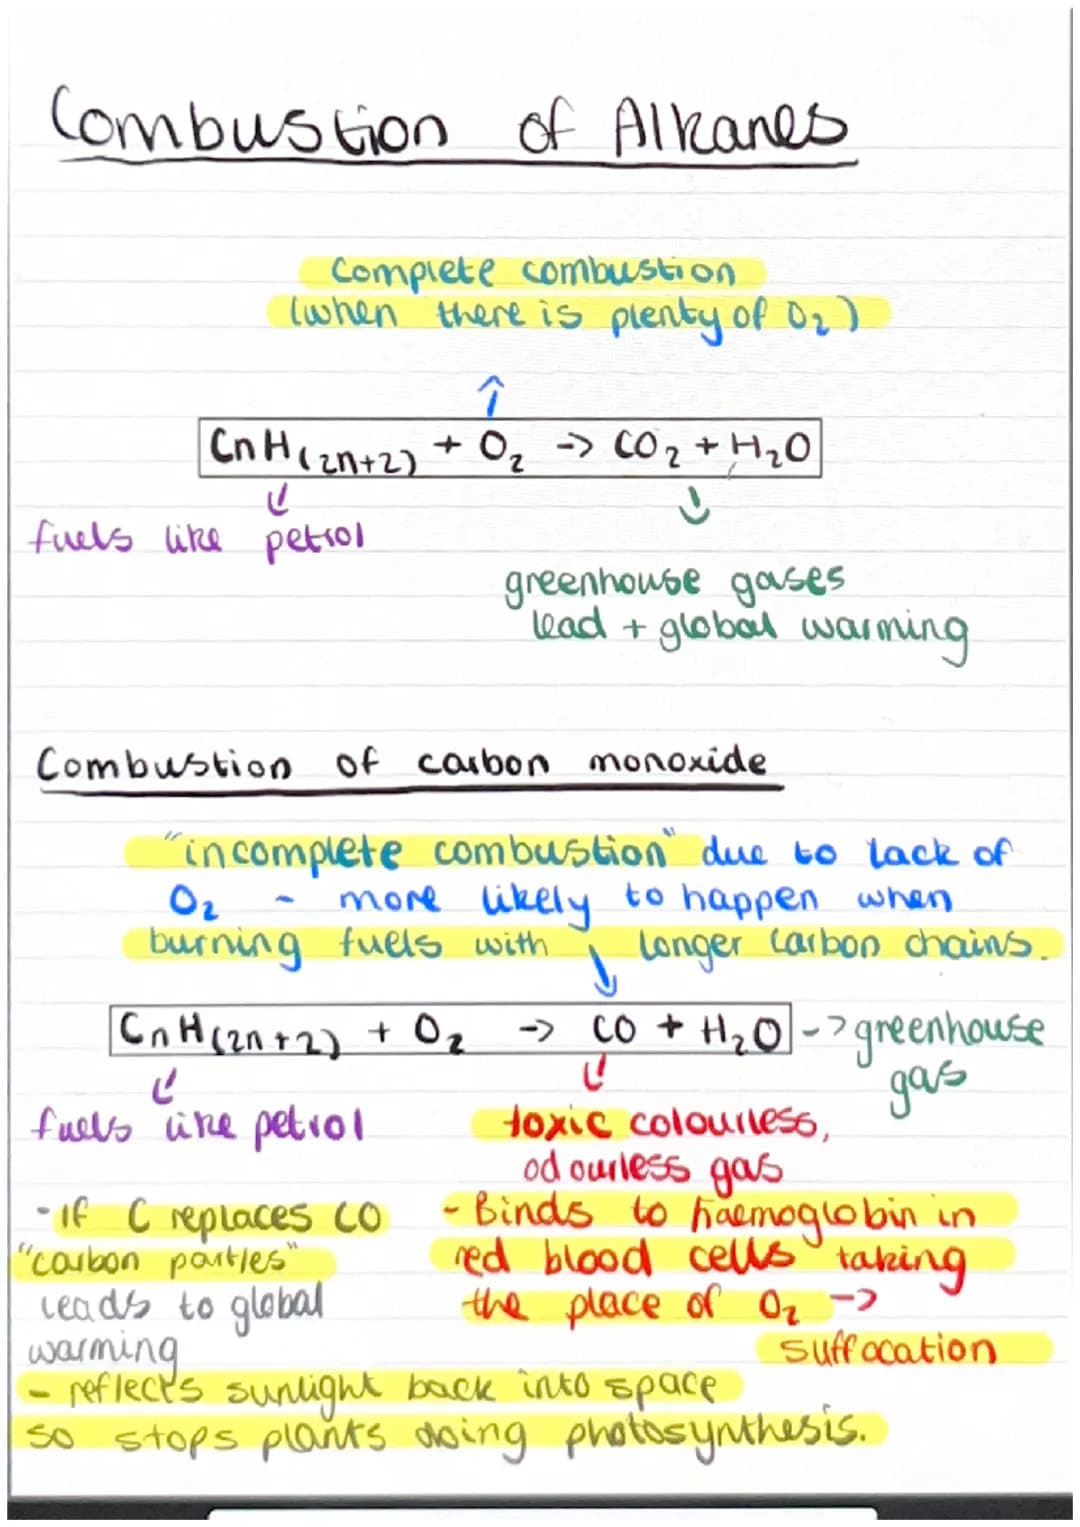 Combustion of Alkanes
Complete combustion
(when there is plenty of O₂)
CnH(2n+2) + O₂ -> CO₂ + H₂O
fuels like petrol
greenhouse gases
lead + global warming
Combustion of carbon monoxide
"incomplete combustion" due to lack of
O₂ - more likely to happen when
burning fuels with longer carbon chains.
CnH(2n+2) + O₂ -> CO + H₂O -> greenhouse
gas
fuels like petrol
toxic colourless,
odourless gas
- Binds to haemoglobin in
red blood cells taking
the place of O₂ ->
suffocation
- If C replaces CO
"carbon partles"
leads to global
warming
- reflects sunlight back into space
so stops plants doing photosynthesis.